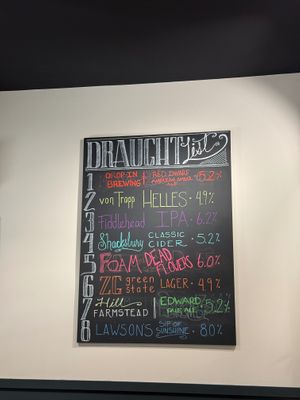 DRAUGHT List
1 DROP-IN BREWING + RED DWARF AMERICAN AMBER ALE • 5.2%
2 von Trapp HELLES • 4.9%
3 Fiddlehead IPA • 6.2%
4 Shacksbury CLASSIC CIDER • 5.2%
5 FOAM DEAD FLOWERS 6.0%
6 ZG green state LAGER • 4.9%
7 Hill FARMSTEAD EDWARD PALE ALE 5.2%
8 LAWSONS SIP OF SUNSHINE • 8.0%